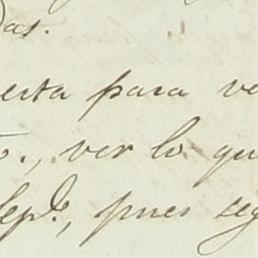 das.
erta para ve
o., ver lo qu
Sepe., pues seg